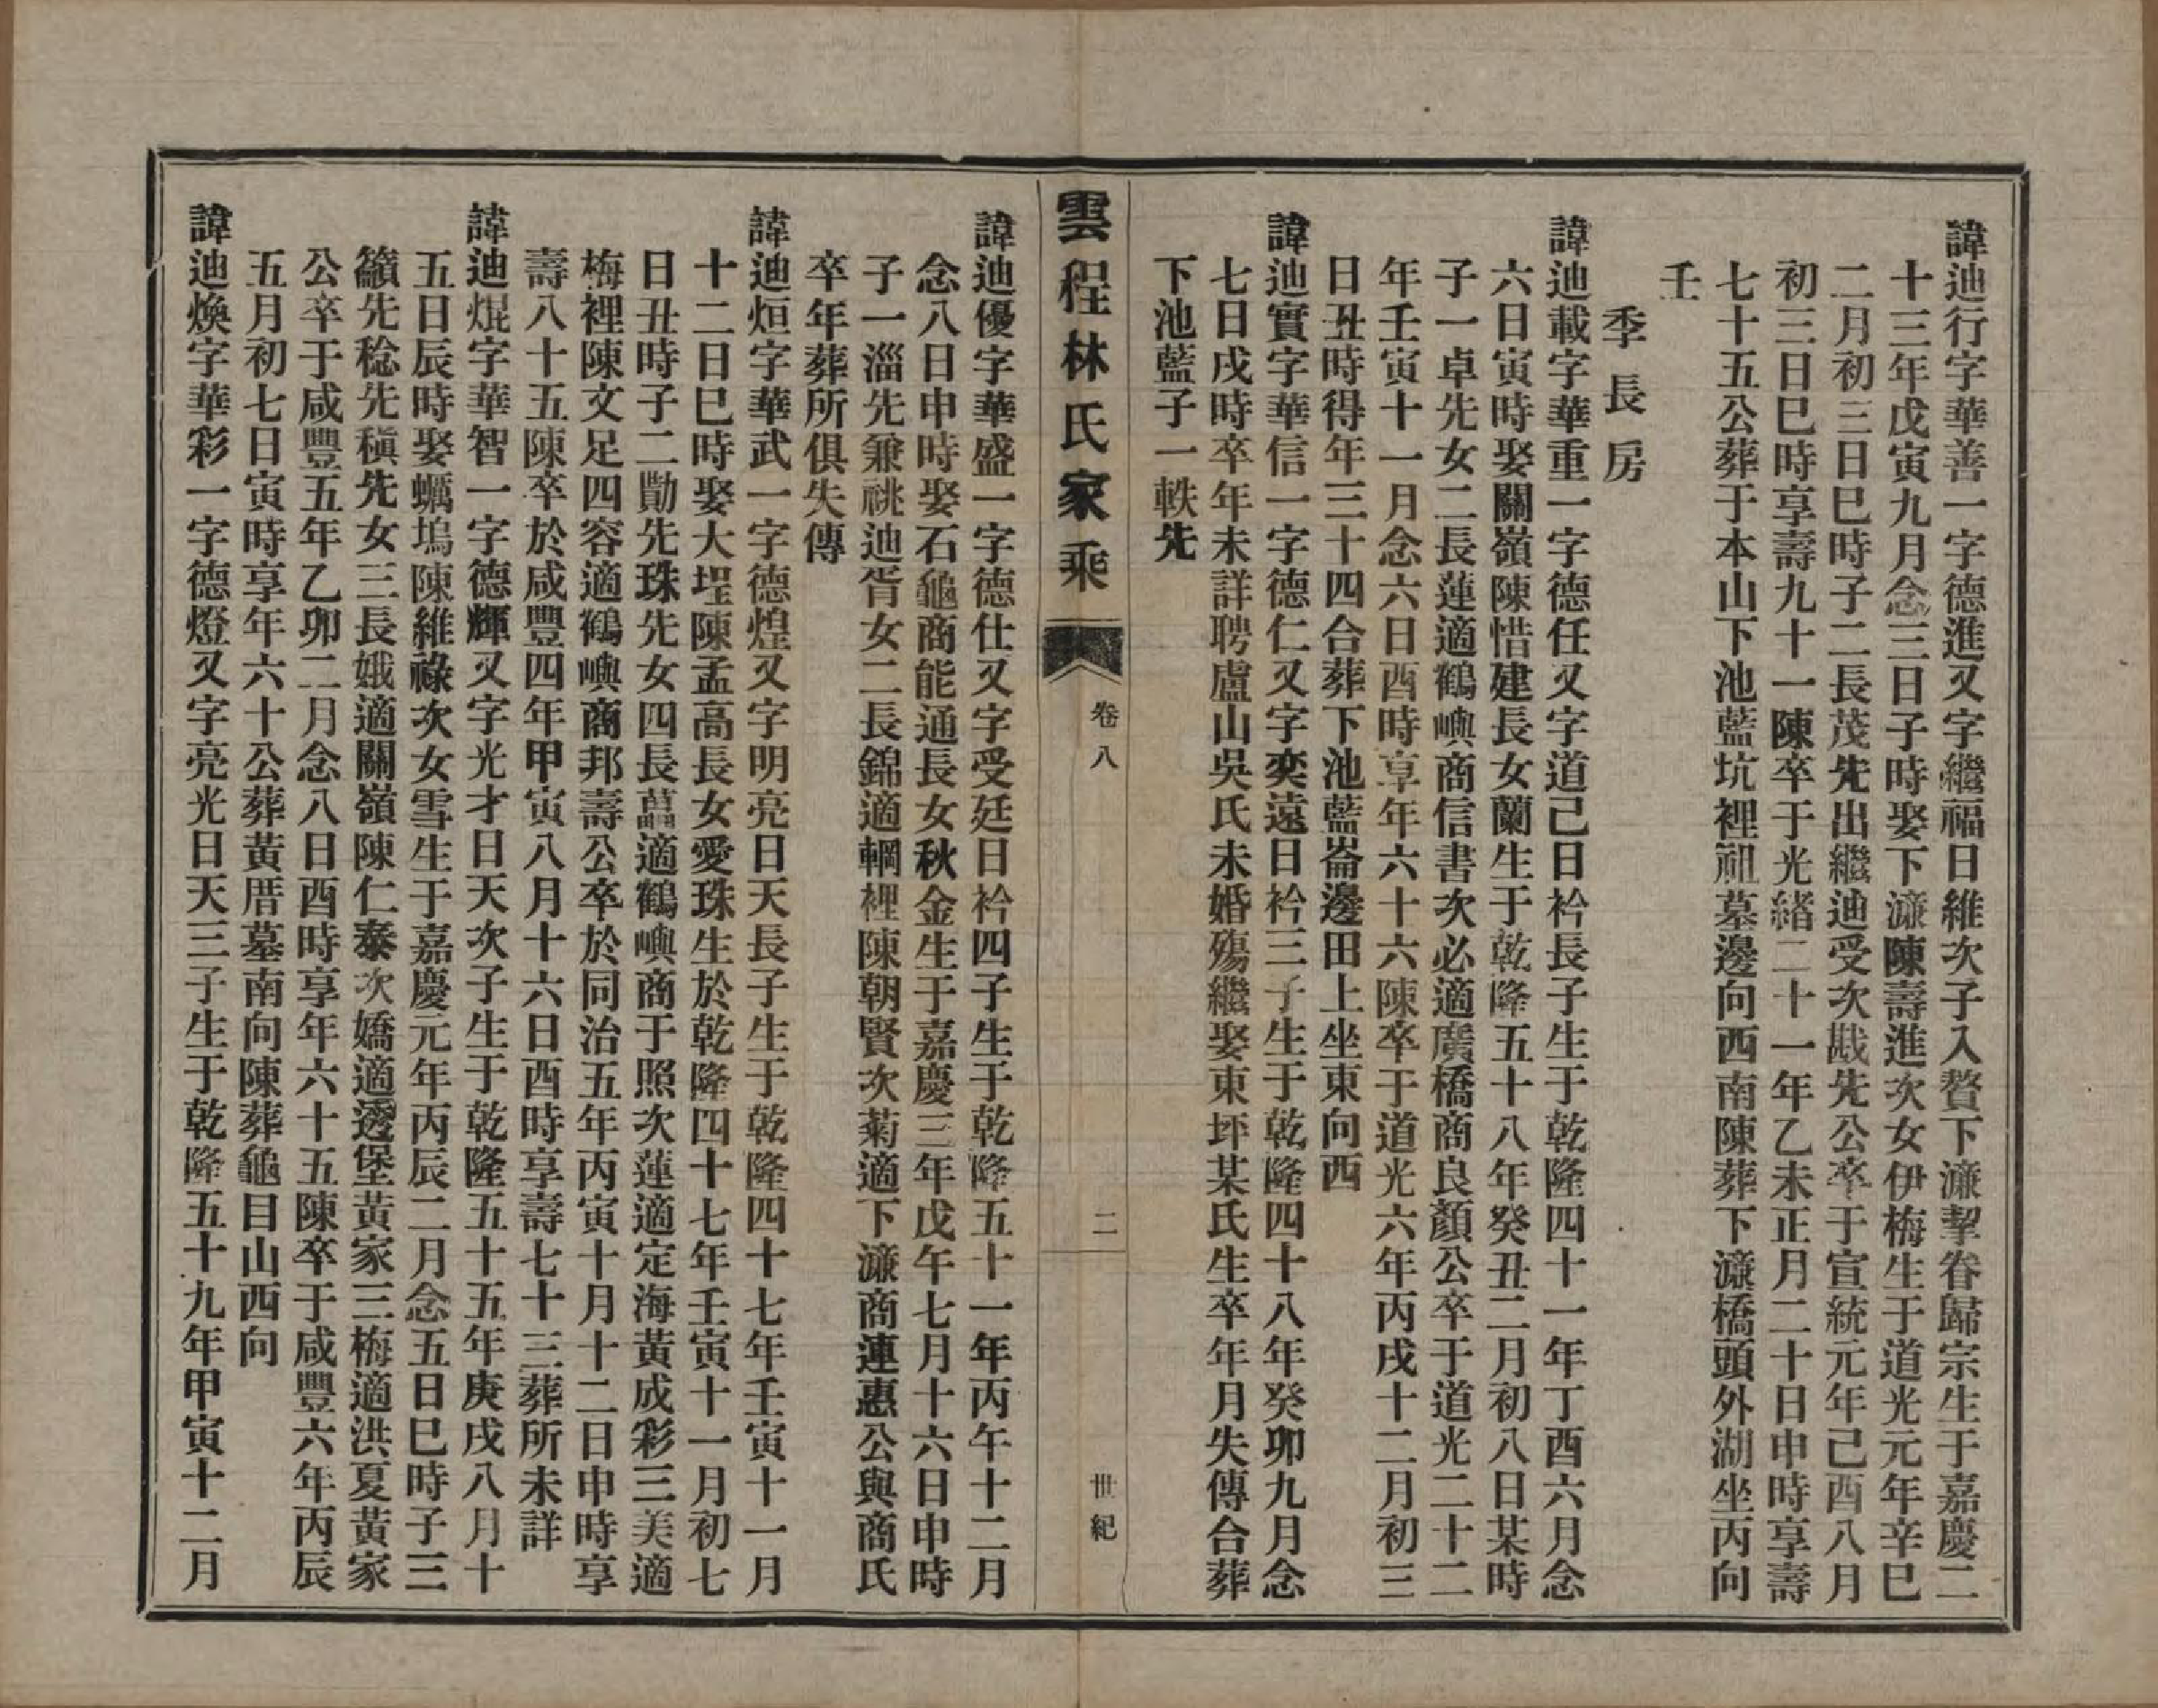 諱迪行字華善一字德進又字繼福日維次子入贅下濂挈眷歸宗生于嘉慶二
十三年戊寅九月念三日子時娶下濂陳壽進次女伊梅生于道光元年辛巳
二月初三日巳時子二長茂先出繼迪受次戡先公卒于宣統元年己酉八月
初三日巳時享壽九十一陳卒于光緒二十一年乙未正月二十日申時享壽
七十五公葬于本山下池藍坑裡祖墓邊向西南陳葬下濂橋頭外湖坐丙向
壬
季長房
諱迪載字華重一字德任又字道己日衿長子生于乾隆四十一年丁酉六月念
六日寅時娶關嶺陳惜建長女蘭生于乾隆五十八年癸丑二月初八日某時
子一卓先女二長蓮適鶴嶼商信書次必適廣橋商良顏公卒于道光二十二
年壬寅十一月念六日酉時享年六十六陳卒于道光六年丙戌十二月初三
日丑時得年三十四合葬下池藍崙邊田上坐東向西
諱迪實字華信一字德仁又字奕遠日衿三子生于乾隆四十八年癸卯九月念
七日戌時卒年未詳聘盧山吳氏未婚殤繼娶東坪某氏生卒年月失傳合葬
下池藍子一軼先
雲程林氏家乘
卷八
二
世紀
諱迪優字華盛一字德仕又字受廷日衿四子生于乾隆五十一年丙午十二月
念八日申時娶石龜商能通長女秋金生于嘉慶三年戊午七月十六日申時
子一淄先兼祧迪胥女二長錦適輞裡陳朝賢次菊適下濂商連惠公與商氏
卒年葬所俱失傳
諱迪烜字華武一字德煌又字明亮日天長子生于乾隆四十七年壬寅十一月
十二日巳時娶大埕陳孟高長女愛珠生於乾隆四十七年壬寅十一月初七
日丑時子二勩先珠先女四長萬適鶴嶼商于照次蓮適定海黃成彩三美適
梅裡陳文足四容適鶴嶼商邦壽公卒於同治五年丙寅十月十二日申時享
壽八十五陳卒於咸豐四年甲寅八月十六日酉時享壽七十三葬所未詳
諱迪焜字華智一字德輝又字光才日天次子生于乾隆五十五年庚戌八月十
五日辰時娶蠣塢陳維祿次女雪生于嘉慶元年丙辰二月念五日巳時子三
籲先稔先稹先女三長娥適關嶺陳仁泰次嬌適邊堡黃家三梅適洪夏黃家
公卒于咸豐五年乙卯二月念八日酉時享年六十五陳卒于咸豐六年丙辰
五月初七日寅時享年六十公葬黃厝墓南向陳葬龜目山西向
諱迪煥字華彩一字德燈又字亮光日天三子生于乾隆五十九年甲寅十二月